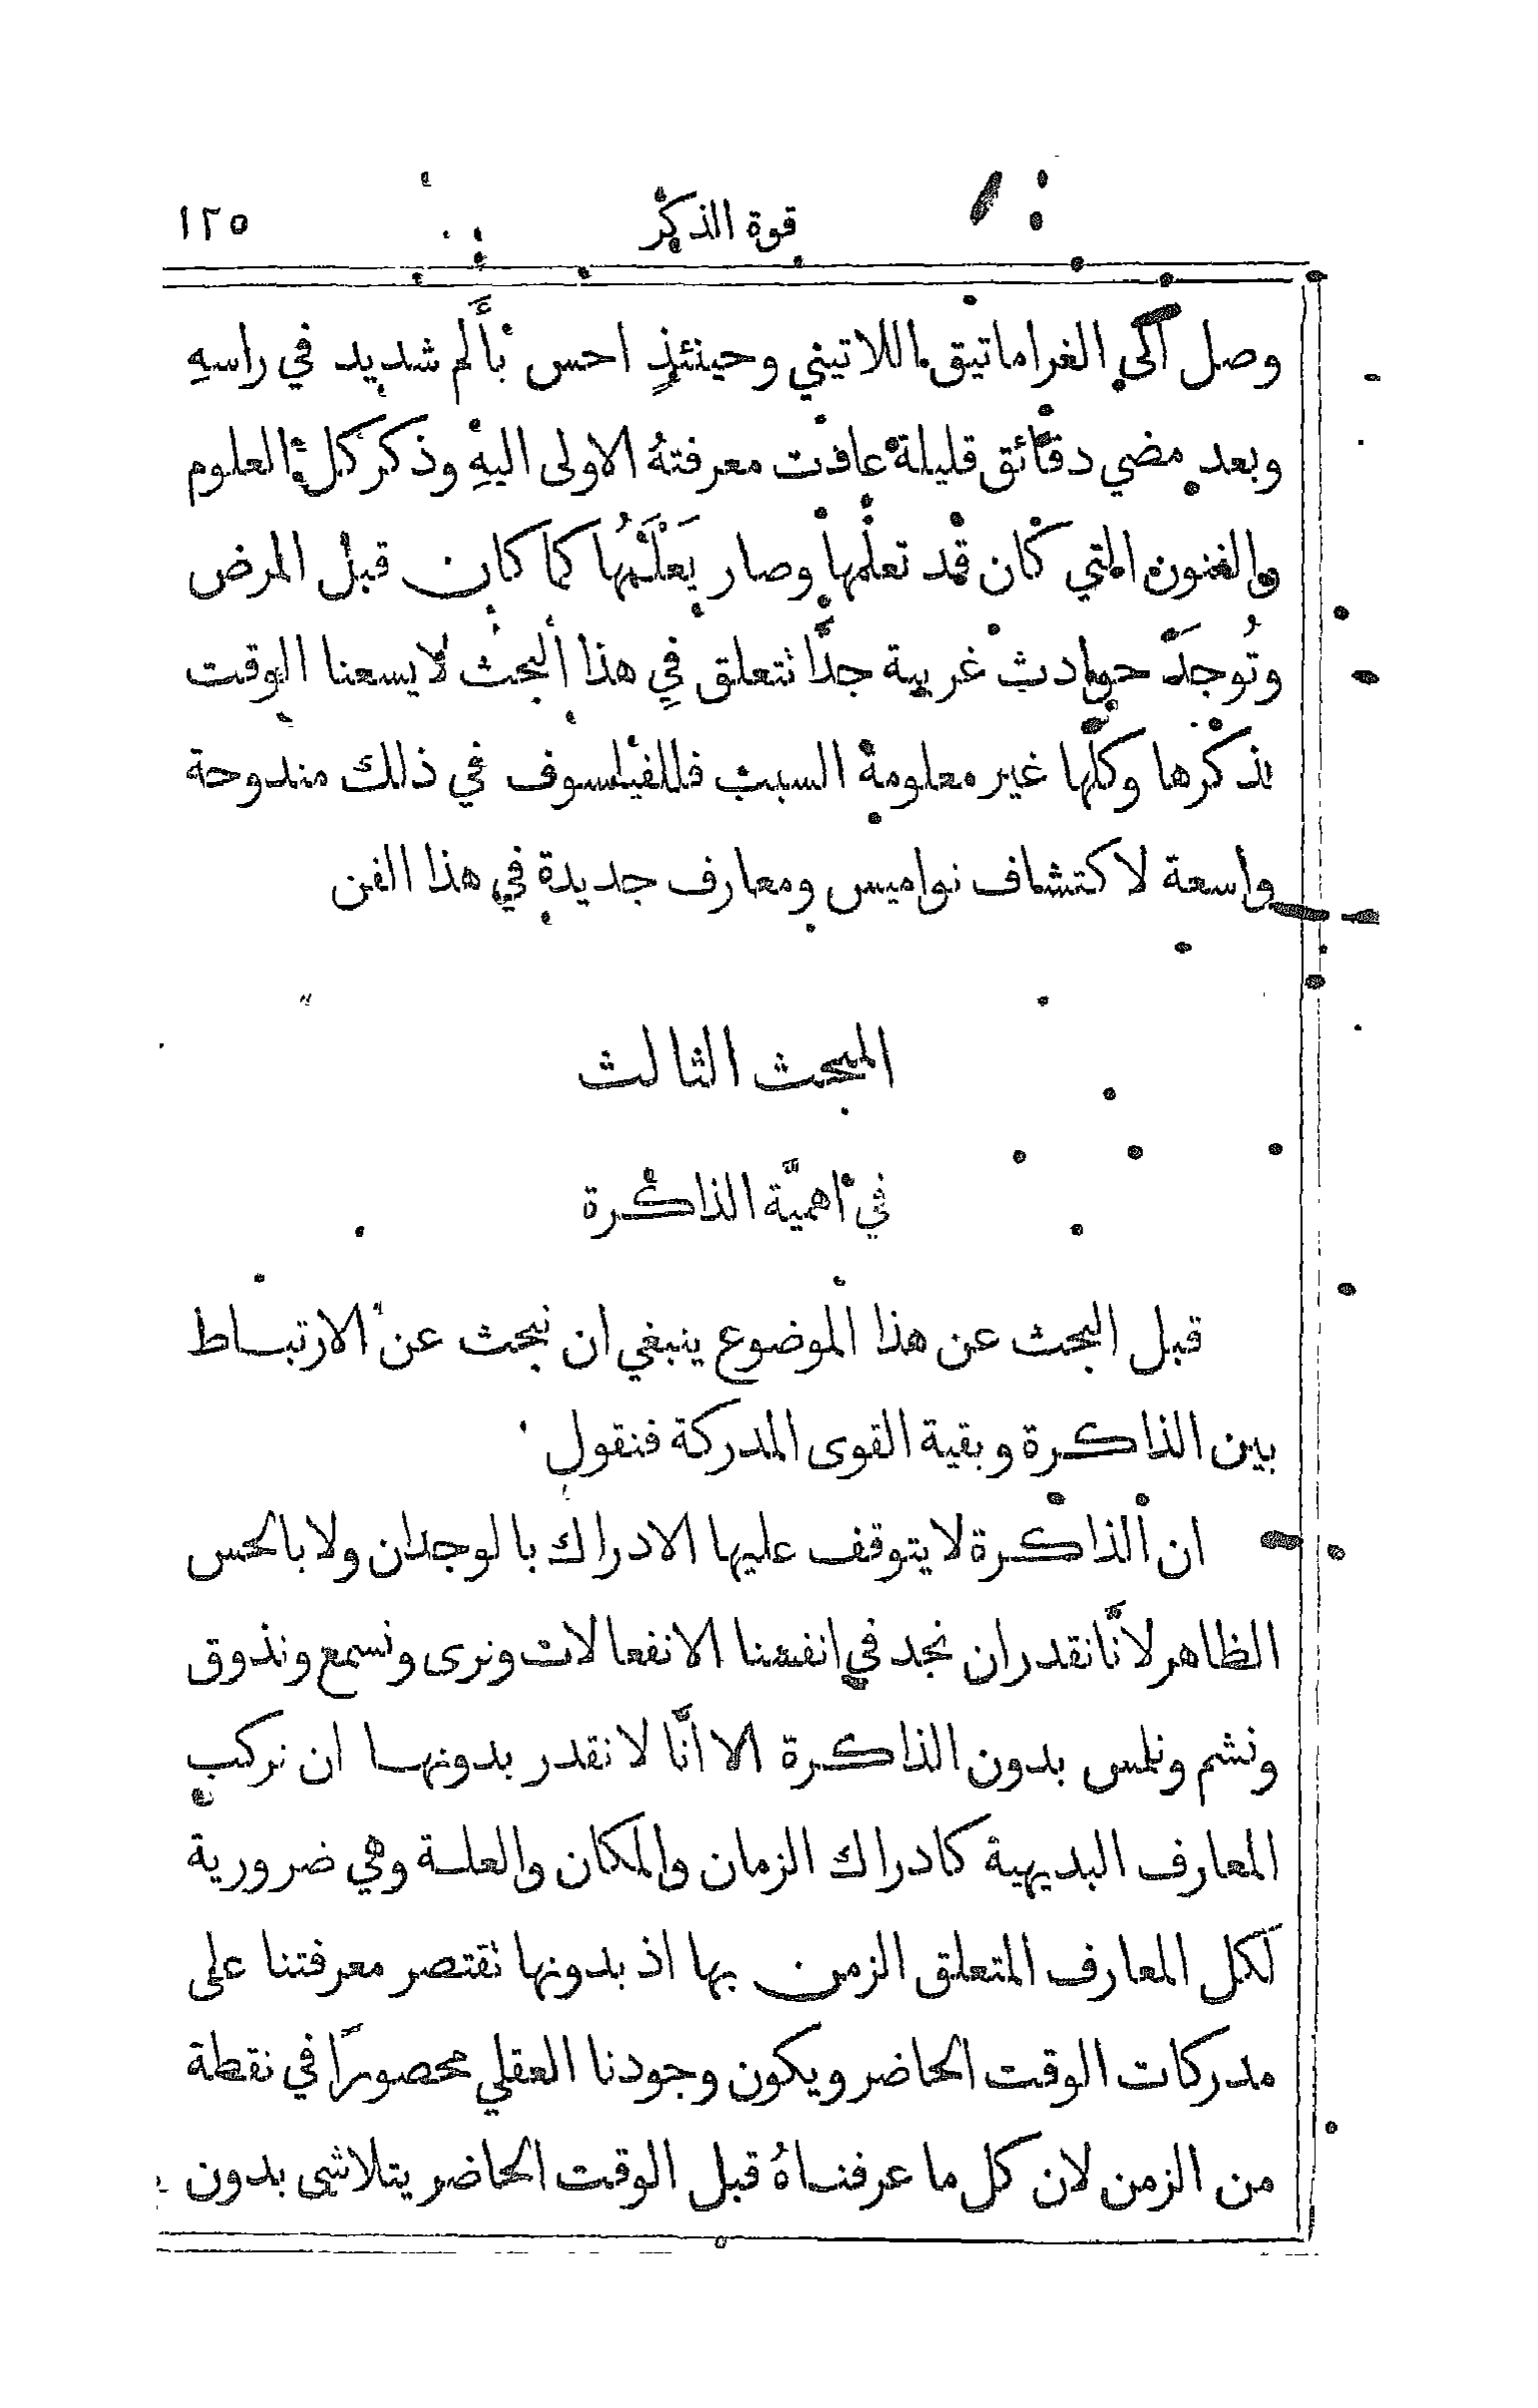 قوة الذكر ١٢٥
وصل الى الغراماتيق اللاتيني وحينئذٍ احس بأَلم شديد في راسهِ
وبعد مضي دقائق قليلة عادت معرفتهُ الاولى اليهِ وذكر كل العلوم
والفنون التي كان قد تعلمها وصار يَعْلَمُها كما كان قبل المرض
وتُوجَد حوادث غريبة جدًّا نتعلق في هذا البحث لا يسعنا الوقت
بذكرها وكلُّها غير معلومة السبب فللفيلسوف في ذلك مندوحة
واسعة لاكتشاف نواميس ومعارف جديدة في هذا الفن
المبحث الثالث
في اهميَّة الذاكرة
قبل البحث عن هذا الموضوع ينبغي ان نبحث عن الارتباط
بين الذاكرة وبقية القوى المدركة فنقول
ان الذاكرة لا يتوقف عليها الادراك بالوجدان ولا بالحس
الظاهر لانَّا نقدر ان نجد في انفسنا الانفعالات ونرى ونسمع ونذوق
ونشم ونلمس بدون الذاكرة الا انَّا لا نقدر بدونها ان نركب
المعارف البديهية كادراك الزمان والمكان والعلة وهي ضرورية
لكل المعارف المتعلق الزمن بها اذ بدونها نقتصر معرفتنا على
مدركات الوقت الحاضر ويكون وجودنا العقلي محصورًا في نقطة
من الزمن لان كل ما عرفناهُ قبل الوقت الحاضر يتلاشى بدون